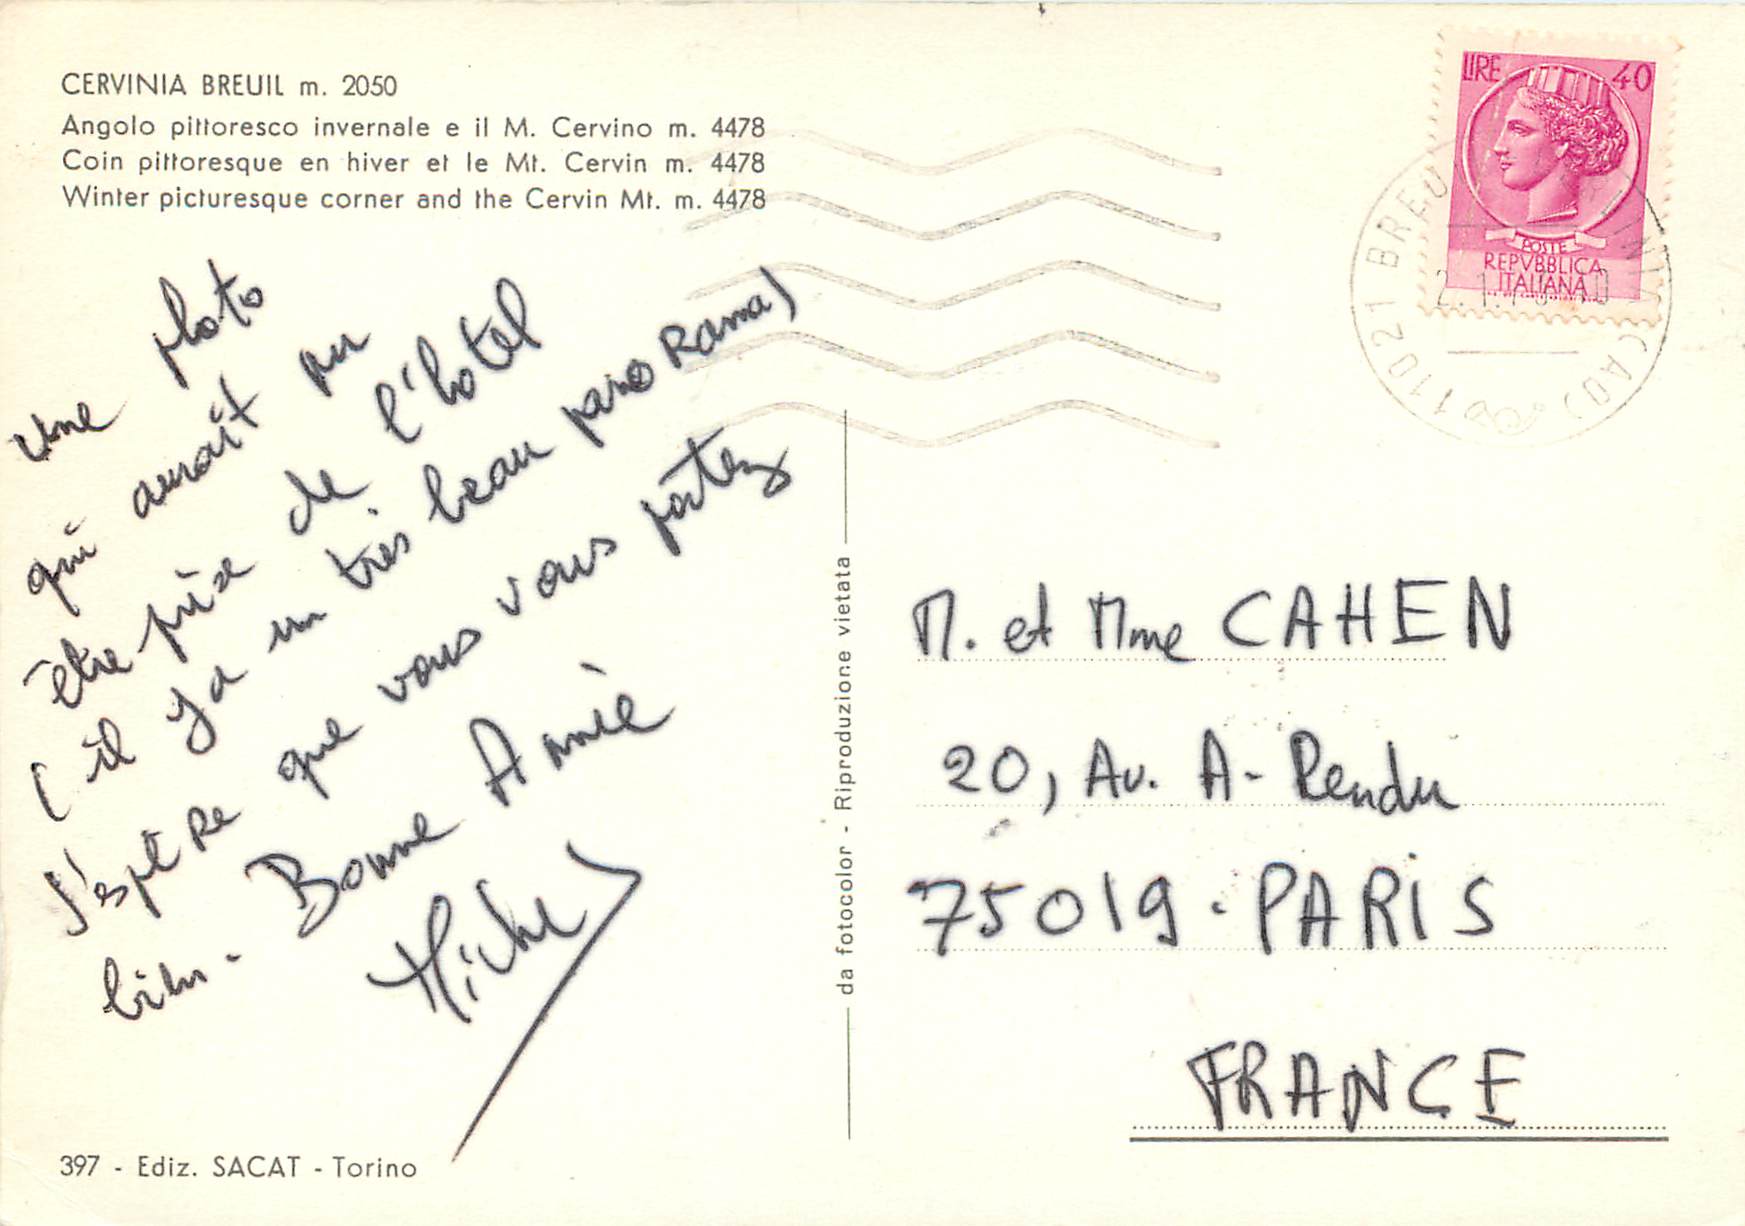 CERVINIA BREUIL m. 2050
Angolo pittoresco invernale e il M. Cervino m. 4478
Coin pittoresque en hiver et le Mt. Cervin m. 4478
Winter picturesque corner and the Cervin Mt. m. 4478
Une photo
qui aurait pu
être prise de l'hotel
(il y a un très beau panoRama)
J'espèRe que vous vous portez
bien - Bonne Année
Michel
397 - Ediz. SACAT - Torino
da fotocolor - Riproduzione vietata
LIRE 40
POSTE
REPVBBLICA
ITALIANA
11021 BREU
M. et Mme CAHEN
20, Av. A- Rendu
75019 - PARIS
FRANCE